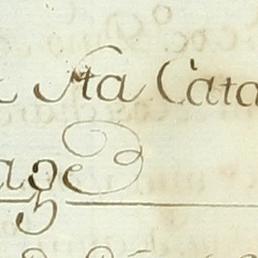 Sta Cata
age